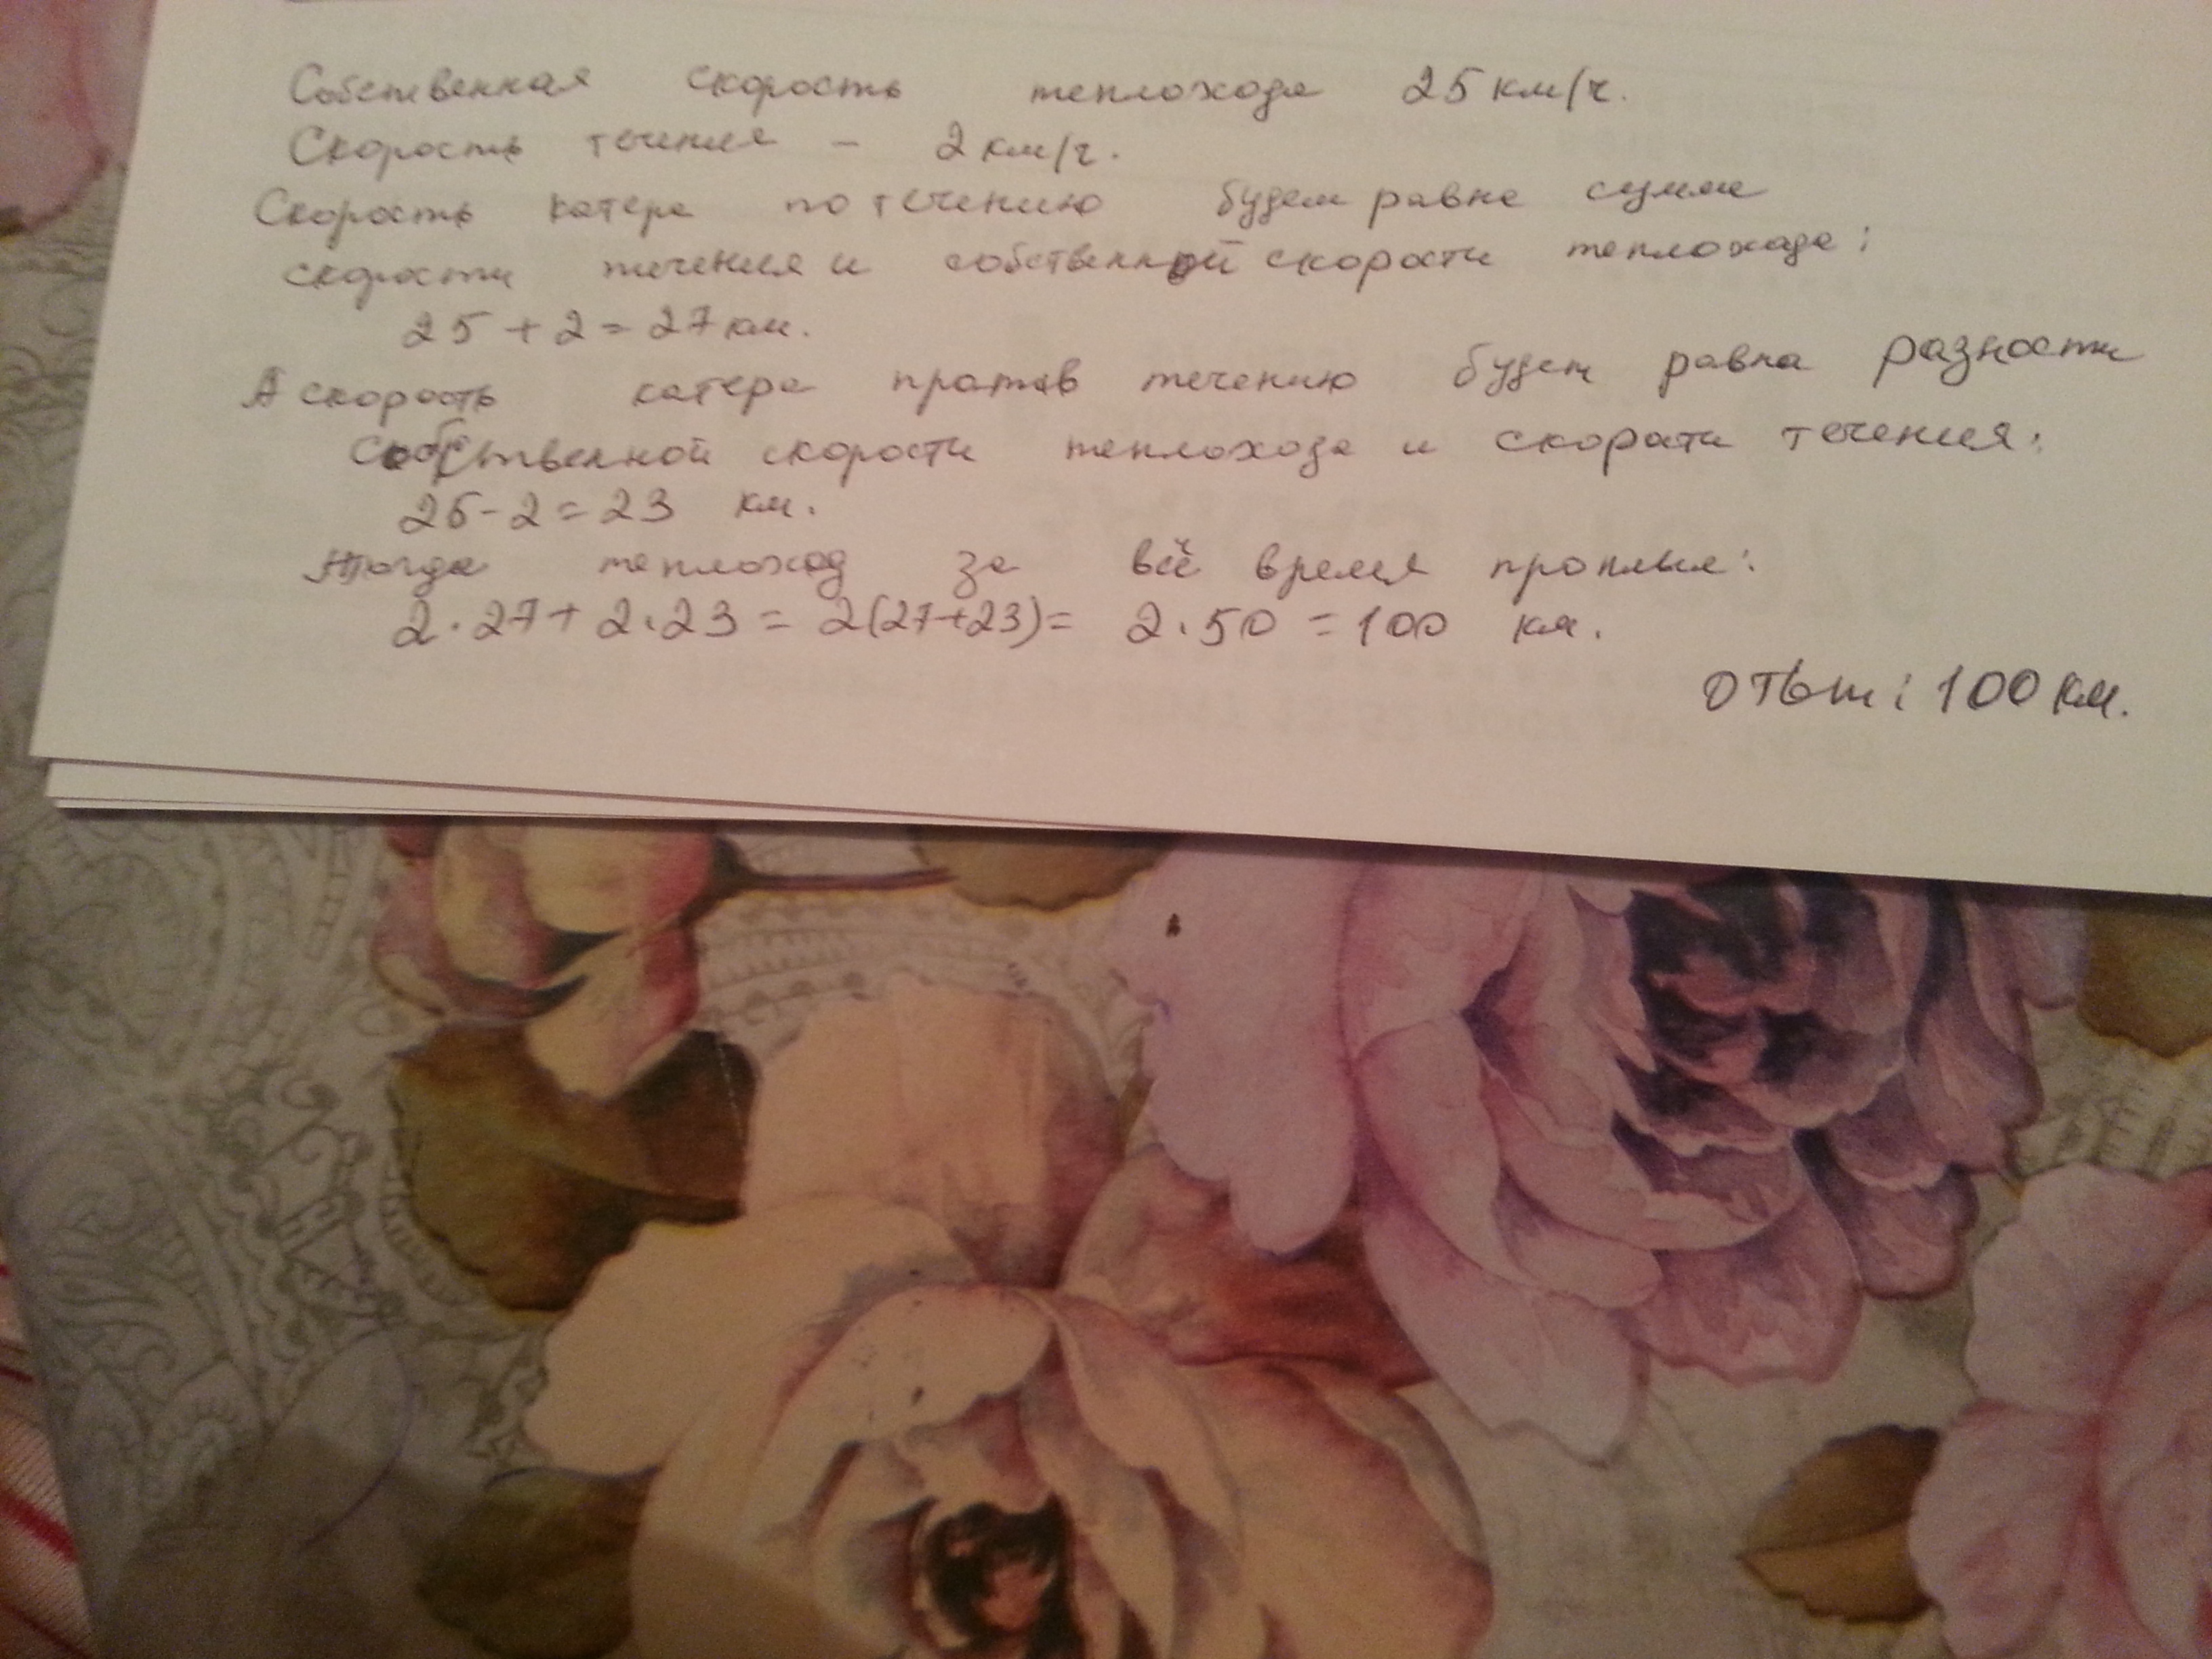 Собственная скорость теплохода 25 км/ч.
Скорость течения - 2 км/ч.
Скорость катера по течению будет равна сумме
скорости течения и собственной скорости теплохода:
25 + 2 = 27 км.
А скорость катера против течению будет равна разности
Собственной скорости теплохода и скорости течения:
25 - 2 = 23 км.
Тогда теплоход за всё время проплыл:
2 · 27 + 2 · 23 = 2(27+23) = 2 · 50 = 100 км.
Ответ: 100 км.